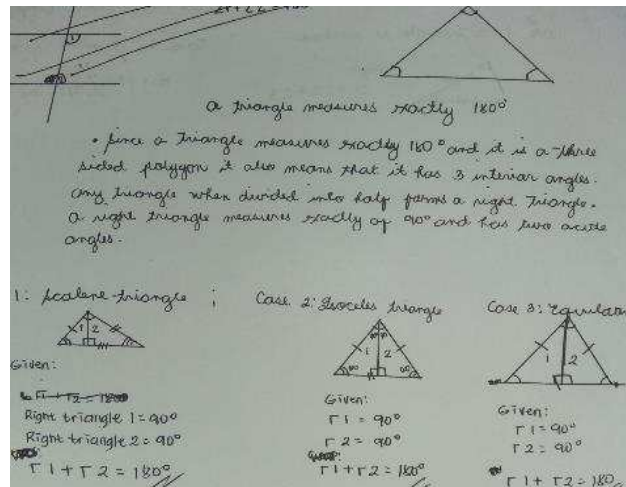 a triangle measures exactly 180°
• Since a triangle measures exactly 180° and it is a three
sided polygon it also means that it has 3 interior angles.
any triangle when divided into half forms a right triangle.
a right triangle measures exactly of 90° and has two acute
angles.
1: Scalene triangle ;
1 2
Given:
Right triangle 1 = 90°
Right triangle 2 = 90°
Γ1 + Γ2 = 180°
Case 2: Isoceles triangle
1 2
Given:
Γ1 = 90°
Γ2 = 90°
Γ1 + Γ2 = 180°
Case 3: Equilater
1 2
Given:
Γ1 = 90°
Γ2 = 90°
Γ1 + Γ2 = 180